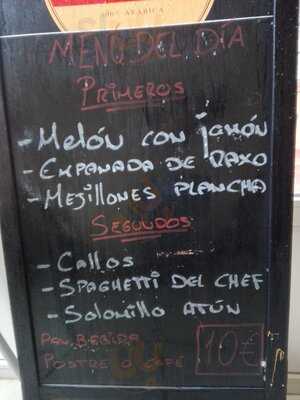 100% ARABICA
MENÚ DEL DÍA
PRIMEROS
- Melón con jamón
- EMPANADA DE RAXO
- MEJILLONES PLANCHA
SEGUNDOS
- CALLOS
- SPAGHETTI DEL CHEF
- Solomillo ATÚN
PAN, BEBIDA
POSTRE O CAFÉ
10€